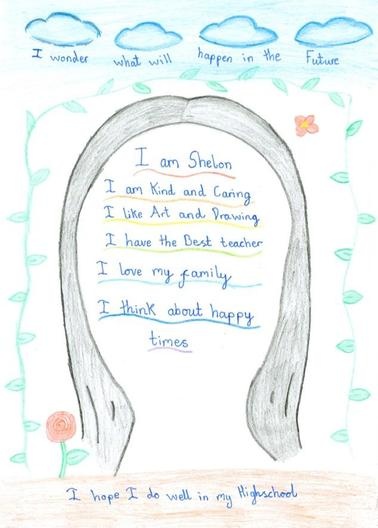 I wonder what will happen in the Future
I am Shelon
I am Kind and Caring
I like Art and Drawing
I have the Best teacher
I love my family
I think about happy
times
I hope I do well in my Highschool